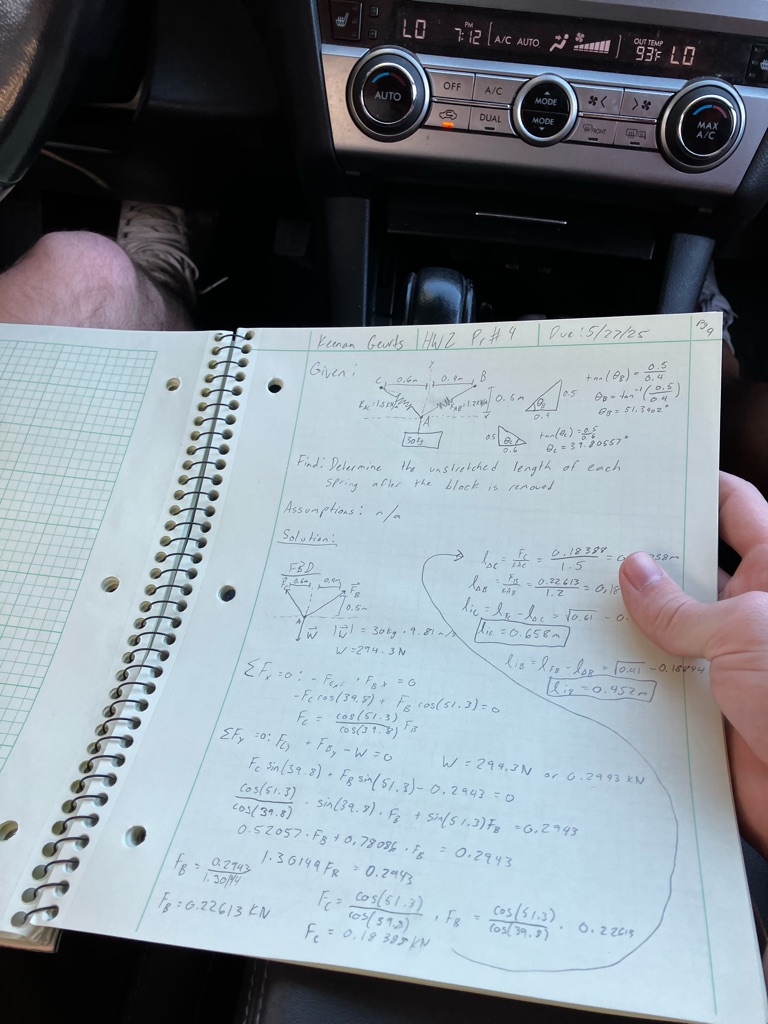 LO
PM
7:12
A/C AUTO
OUT TEMP
93°F
LO
AUTO
OFF
A/C
MODE
MODE
DUAL
FRONT
MAX
A/C
Keenan Geurds
HW2 Pr# 4
Due: 5/27/25
Pg 9
Given:
C 0.6m 0.4m B
0.5m
A
tan(θB) = 0.5/0.4
θB = tan⁻¹(0.5/0.4)
θB = 51.3402°
θB 0.5
0.4
0.5 θC
0.6
tan(θC) = 0.5/0.6
θC = 39.80557°
Find: Determine the unstretched length of each
spring after the block is removed
Assumptions: n/a
Solution:
FBD
0.6m 0.4m
FB
0.5m
A
W
|W| = 30kg · 9.81 m/s
W = 294.3N
ΣFx = 0: -FCx + FBx = 0
-FC cos(39.8) + FB cos(51.3) = 0
FC = cos(51.3)/cos(39.8) FB
ΣFy = 0: FCy + FBy - W = 0
W = 294.3N or 0.2943 kN
FC sin(39.8) + FB sin(51.3) - 0.2943 = 0
cos(51.3)/cos(39.8) · sin(39.8) · FB + sin(51.3)FB = 0.2943
0.52057 · FB + 0.78086 · FB = 0.2943
1.30144 FB = 0.2943
FB = 0.2943/1.30144
FB = 0.22613 KN
FC = cos(51.3)/cos(39.8) · FB = cos(51.3)/cos(39.8) · 0.22613
FC = 0.18388 KN
lΔC = FC/KAC = 0.18388/1.5 =
lΔB = FB/KAB = 0.22613/1.2 =
liC = lFC - lΔC = √0.61 -
liC = 0.658m
liB = lFB - lΔB = √0.41 - 0.18844
liB = 0.452m